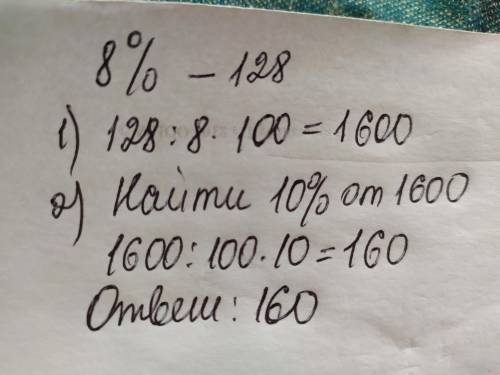 8% – 128
1) 128:8·100=1600
2) Найти 10% от 1600
1600:100·10=160
Ответ: 160